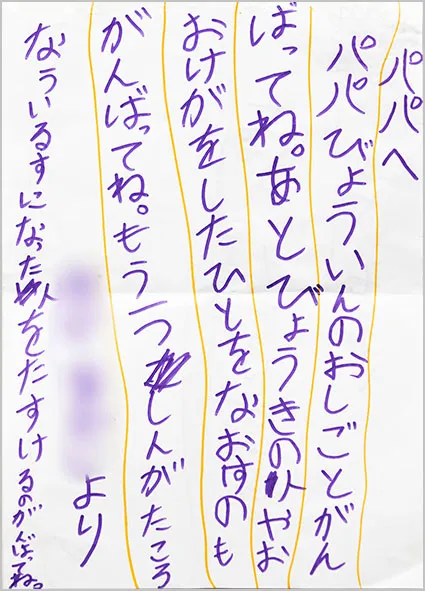 パパへ
パパびょういんのおしごとがん
ばってね。あとびょうきの人やお
おけがをしたひとをなおすのも
がんばってね。もう一つしんがたころ
なういるすになった人をたすけるのがんばってね。
より